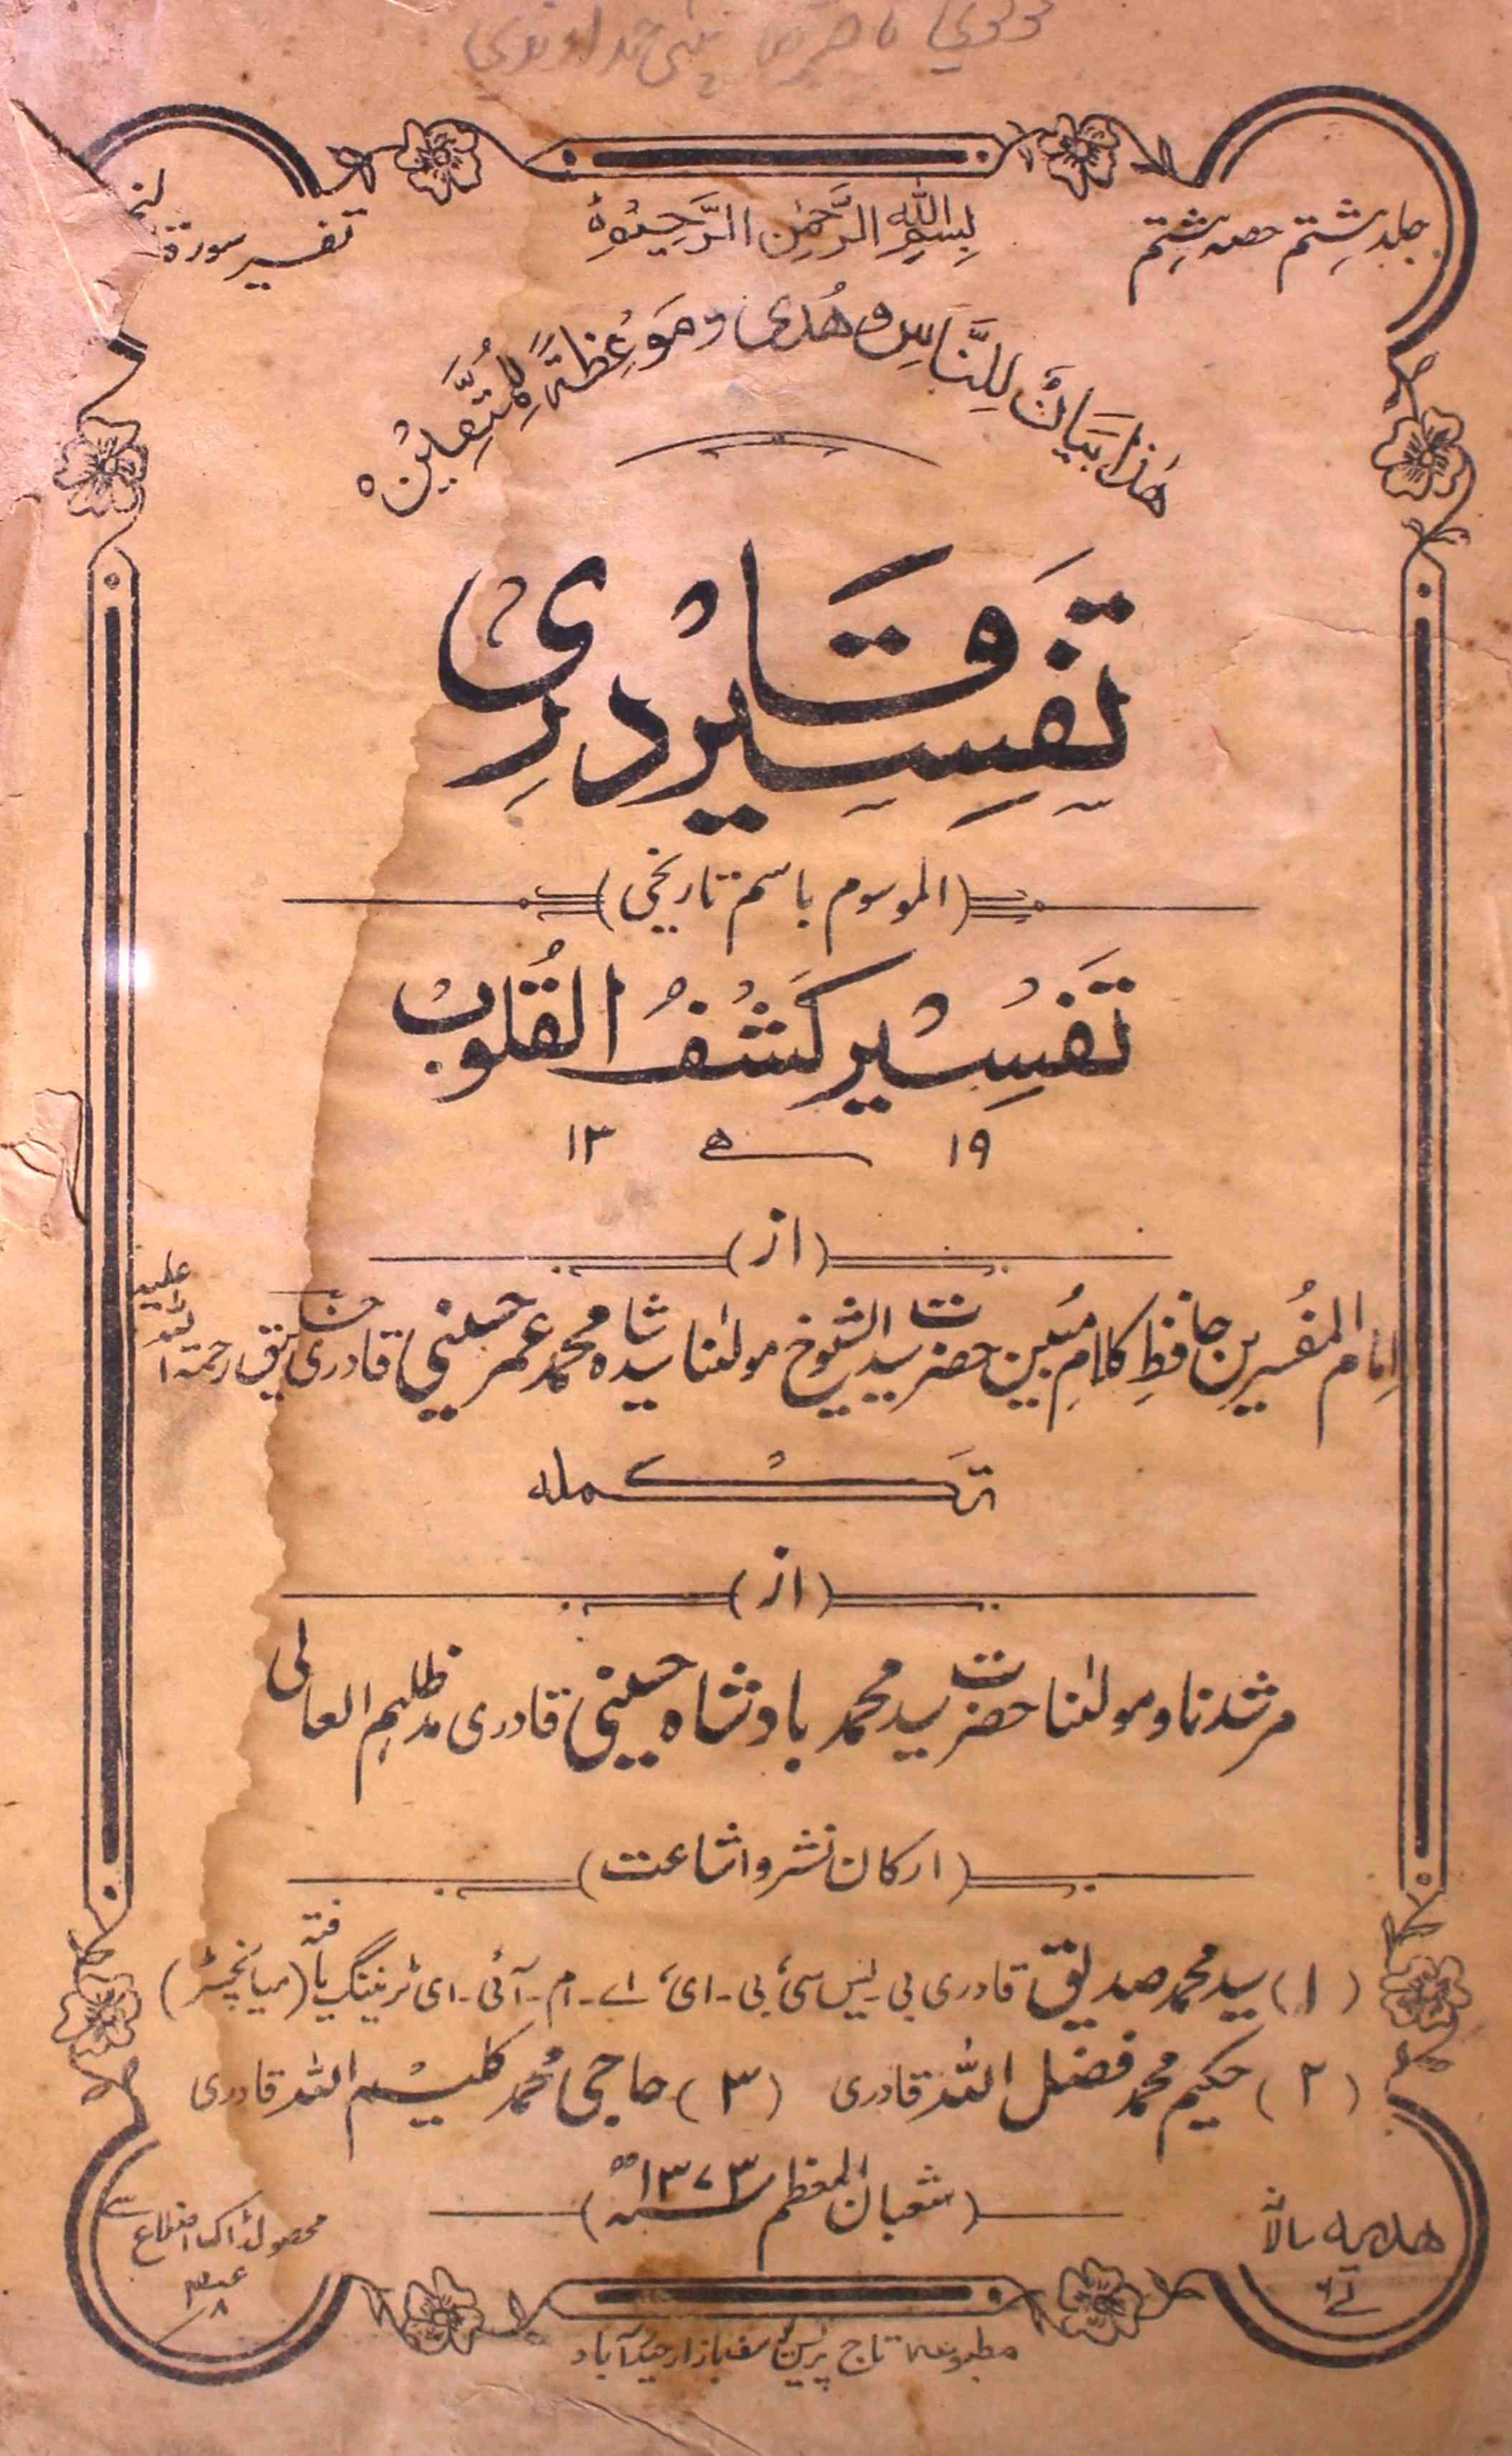 جلد ہشتم حصہ ہشتم
بِسْمِ اللّٰهِ الرَّحْمٰنِ الرَّحِيْمِ
تفسیر سورۃ
هٰذَا بَيَانٌ لِلنَّاسِ وَ هُدًى وَ مَوْعِظَةً لِّلْمُتَّقِيْنَ ہ
تَفسِیر قَادْرِی
(الموسوم باسم تاریخی)
تَفْسِیْر کَشْفُ الْقُلُوْب
۱۳ ھ ۱۹
(از)
اِمام المفُسرین حافظِ کلامِ مُبین حضرت سید الشیوخ مولٰنا سید شاہ محمد عمر حسینی قادری خلیق رحمۃ اللہ علیہ
تَکْملہ
(از)
مرشدنا و مولٰنا حضرت سید محمد بادشاہ حسینی قادری مدظلہم العالی
(ارکان نشر و اشاعت)
(۱) سید محمد صدیق قادری بی۔ایس سی، بی۔ای، اے۔ام۔آئی۔ای ٹریننگ یافتہ (میانچسٹر)
(۲) حکیم محمد فضل اللہ قادری (۳) حاجی محُمد کلیْم اللہ قادری
(شعبان المعظم ۱۳۷۳ھ)
ھدیہ سالانہ
محصولڈاک اضلاع
مطبوعہ تاج پریس یوسف بازار حیدرآباد